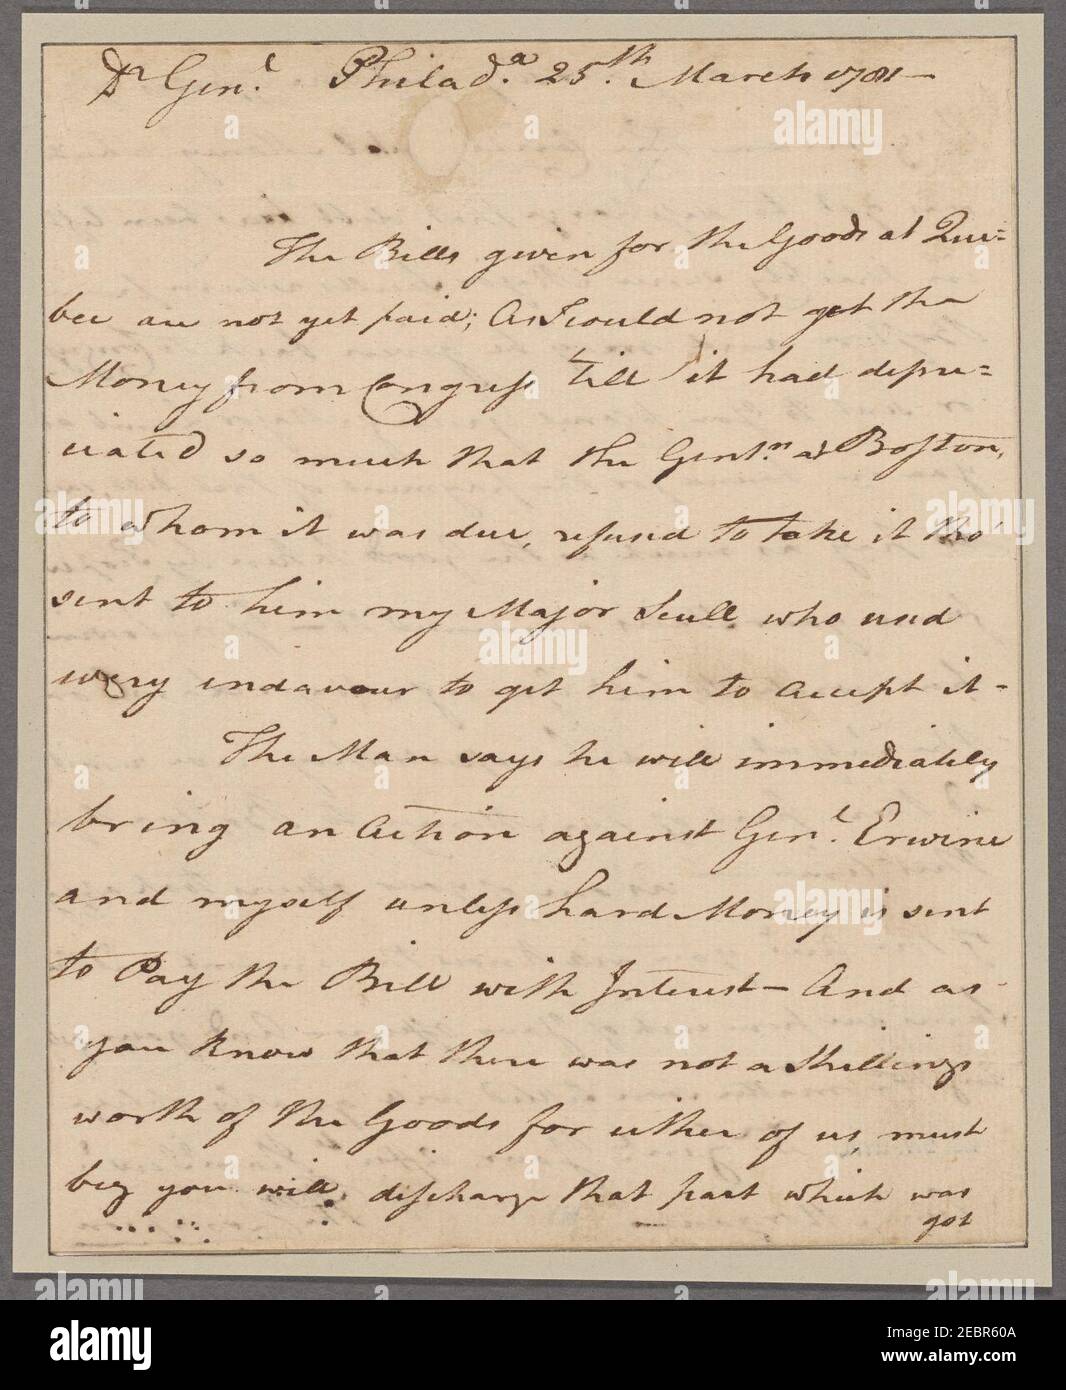 Dr Genl. Philada. 25th. March 1781—
The Bills given for the Goods at Que=
bec are not yet paid; As I could not get the
Money from Congress 'till it had depre=
ciated so much that the Gentn. at Boston,
to whom it was due, refused to take it tho'
sent to him my Major Scull who used
every endavour to get him to accept it-
The Man says he will immediately
bring an Action against Genl. Erwine
and myself unless hard Money is sent
to Pay the Bill with Interest— And as
you know that there was not a Shillings
worth of the Goods for either of us, must
beg you will discharge that part which was
got
alamy
Image ID: 2EBR60A
www.alamy.com